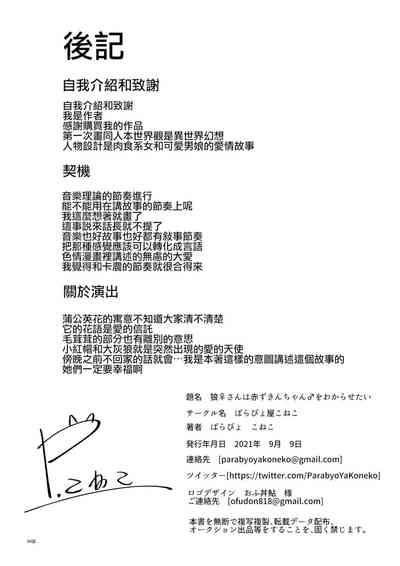 後記
自我介紹和致謝
自我介紹和致謝
我是作者
感謝購買我的作品
第一次畫同人本世界觀是異世界幻想
人物設計是肉食系女和可愛男娘的愛情故事
契機
音樂理論的節奏進行
能不能用在講故事的節奏上呢
我這麼想著就畫了
這事說來話長就不提了
音樂也好故事也好都有敍事節奏
把那種感覺應該可以轉化成言語
色情漫畫裡講述的無慮的大愛
我覺得和卡農的節奏就很合得来
關於演出
蒲公英花的寓意不知道大家清不清楚
它的花語是愛的信託
毛茸茸的部分也有離別的意思
小紅帽和大灰狼就是突然出現的愛的天使
傍晚之前不回家的話就會…我是本著這樣的意圖講述這個故事的
她們一定要幸福啊
題名 狼♀さんは赤ずきんちゃん♂をおからせたい
サークル名 ぱらぴょ屋こねこ
著者 ぱらぴょ こねこ
発行年月日 2021年 9月 9日
連絡先 [parabyoyakoneko@gmail.com]
ツイッター[https://twitter.com/ParabyoYaKoneko]
ロゴデザイン おふ丼鮎 様
ご連絡先 [ofudon818@gmail.com]
本書を無断で複写複製､転載データ配布、
オークション出品等をすることを､固く禁じます。
P.こねこ